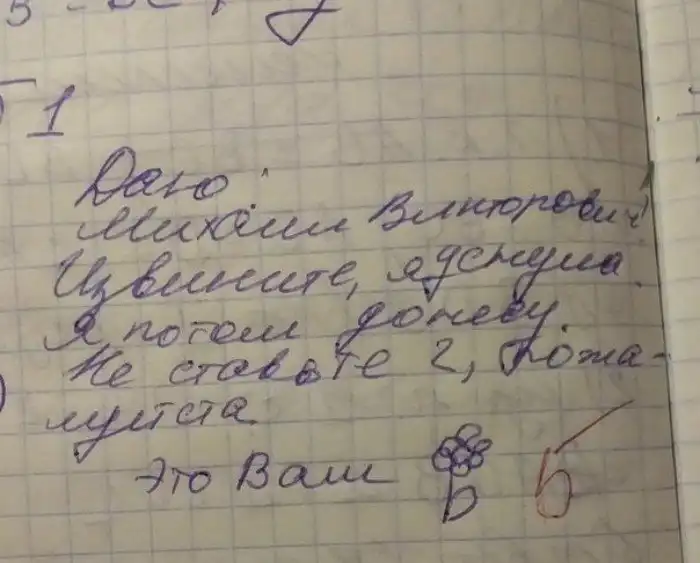 1
Дано:
Михаил Викторович!
Извините, я уснула.
Я потом донесу.
Не ставьте 2, пожа-
луйста
это Вам
5